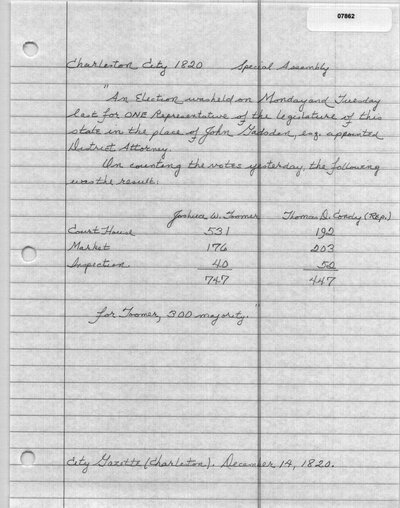 07862
Charleston City 1820 Special Assembly
"An Election was held on Monday and Tuesday
last for ONE Representative of the legislature of this
state in the place of John Gadsden, esq. appointed
District Attorney.
On counting the votes yesterday, the following
was the result:
Joshua W. Toomer Thomas D. Condy (Rep.)
Court House 531 192
Market 176 203
Inspection 40 50
747 447
for Toomer, 300 majority."
City Gazette (Charleston). December 14, 1820.